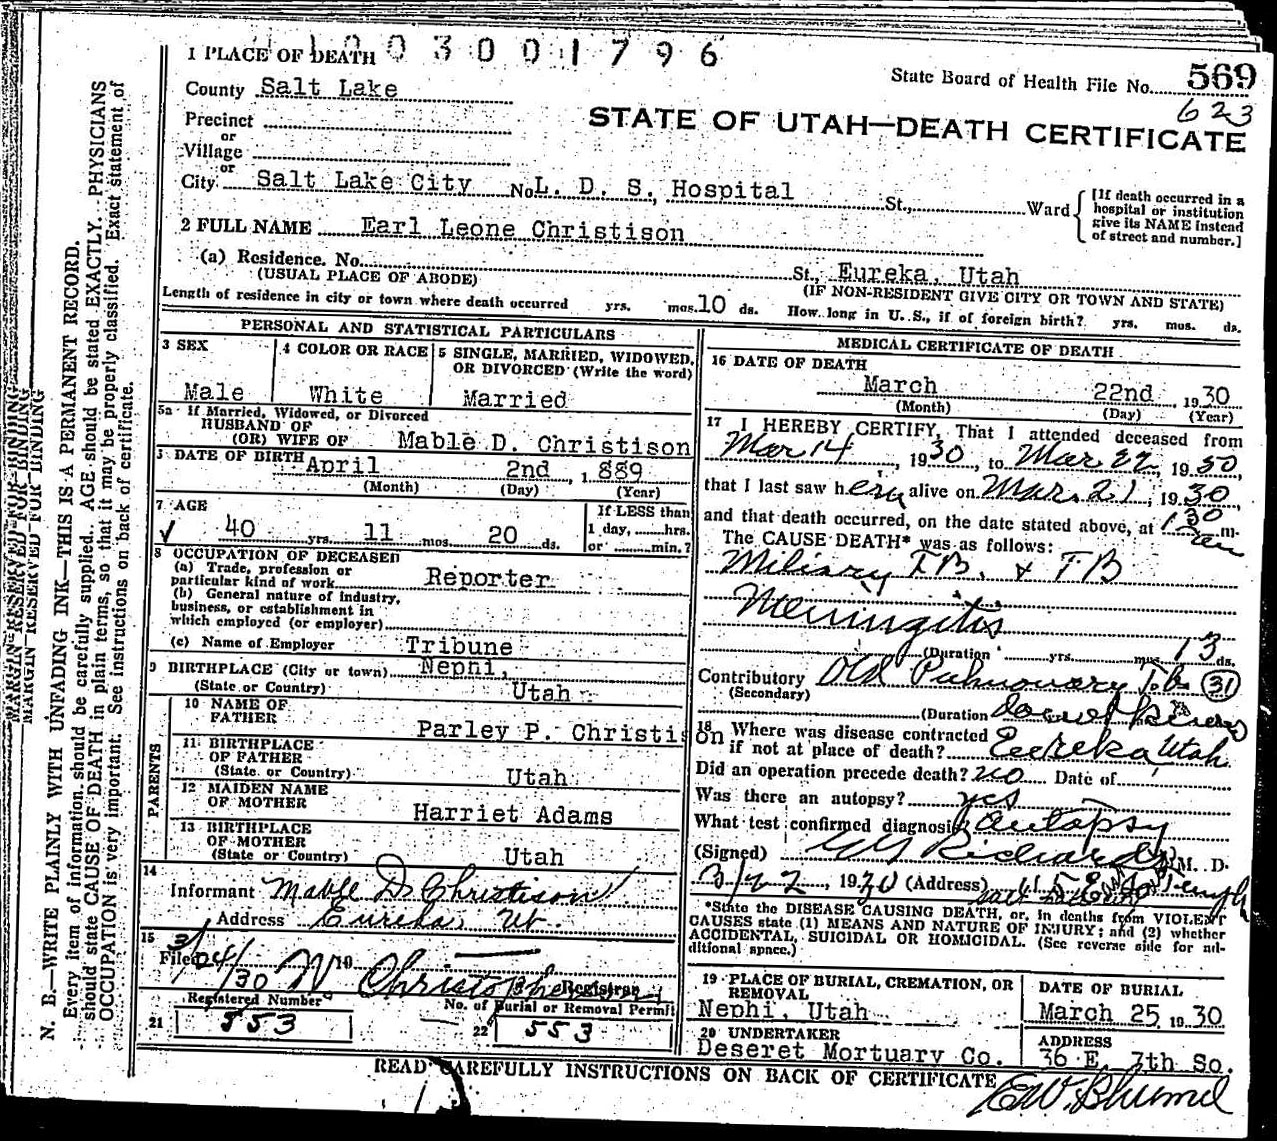 1 PLACE OF DEATH
1003001796
State Board of Health File No. 569
623
County Salt Lake
STATE OF UTAH—DEATH CERTIFICATE
Precinct
or
Village
or
City Salt Lake City No. L. D. S. Hospital St., Ward
[If death occurred in a
hospital or institution
give its NAME instead
of street and number.]
2 FULL NAME Earl Leone Christison
(a) Residence. No. St., Eureka, Utah
(USUAL PLACE OF ABODE) (IF NON-RESIDENT GIVE CITY OR TOWN AND STATE)
Length of residence in city or town where death occurred yrs. mos. 10 ds. How long in U. S., if of foreign birth? yrs. mos. ds.
PERSONAL AND STATISTICAL PARTICULARS
3 SEX
Male
4 COLOR OR RACE
White
5 SINGLE, MARRIED, WIDOWED,
OR DIVORCED (Write the word)
Married
5a If Married, Widowed, or Divorced
HUSBAND OF
(OR) WIFE OF Mable D. Christison
DATE OF BIRTH
April 2nd, 1889
(Month) (Day) (Year)
7 AGE
40 yrs. 11 mos. 20 ds.
If LESS than
1 day, hrs.
or min.?
8 OCCUPATION OF DECEASED
(a) Trade, profession or
particular kind of work Reporter
(b) General nature of industry,
business, or establishment in
which employed (or employer)
(c) Name of Employer Tribune
9 BIRTHPLACE (City or town) Nephi,
(State or Country) Utah
PARENTS
10 NAME OF
FATHER
Parley P. Christison
11 BIRTHPLACE
OF FATHER
(State or Country) Utah
12 MAIDEN NAME
OF MOTHER
Harriet Adams
13 BIRTHPLACE
OF MOTHER
(State or Country) Utah
14
Informant Mable D. Christison
Address Eureka, Ut.
15
Filed 3/24/30 19
Registrar
Registered Number
21 553
No. of Burial or Removal Permit
22 553
MEDICAL CERTIFICATE OF DEATH
16 DATE OF DEATH
March 22nd, 1930
(Month) (Day) (Year)
17 I HEREBY CERTIFY, That I attended deceased from
Mar 14, 1930, to Mar 22, 1930,
that I last saw him alive on Mar. 21, 1930,
and that death occurred, on the date stated above, at 1 30 am
The CAUSE DEATH* was as follows:
Miliary T.B. & TB
Meningitis
(Duration yrs. mos. 13 ds.
Contributory Old Pulmonary T.b. 31
(Secondary)
(Duration
18 Where was disease contracted
if not at place of death? Eureka, Utah
Did an operation precede death? no Date of
Was there an autopsy? yes
What test confirmed diagnosis? autopsy
(Signed) GG Richards, M. D.
3/22, 1930 (Address)
*State the DISEASE CAUSING DEATH, or, in deaths from VIOLENT
CAUSES state (1) MEANS AND NATURE OF INJURY; and (2) whether
ACCIDENTAL, SUICIDAL OR HOMICIDAL. (See reverse side for additional space.)
19 PLACE OF BURIAL, CREMATION, OR
REMOVAL
Nephi, Utah
DATE OF BURIAL
March 25, 1930
20 UNDERTAKER
Deseret Mortuary Co.
ADDRESS
36 E. 7th So.
READ CAREFULLY INSTRUCTIONS ON BACK OF CERTIFICATE
MARGIN RESERVED FOR BINDING
N. B.—WRITE PLAINLY WITH UNFADING INK—THIS IS A PERMANENT RECORD.
Every item of information should be carefully supplied. AGE should be stated EXACTLY. PHYSICIANS
should state CAUSE OF DEATH in plain terms, so that it may be properly classified. Exact statement of
OCCUPATION is very important. See instructions on back of certificate.